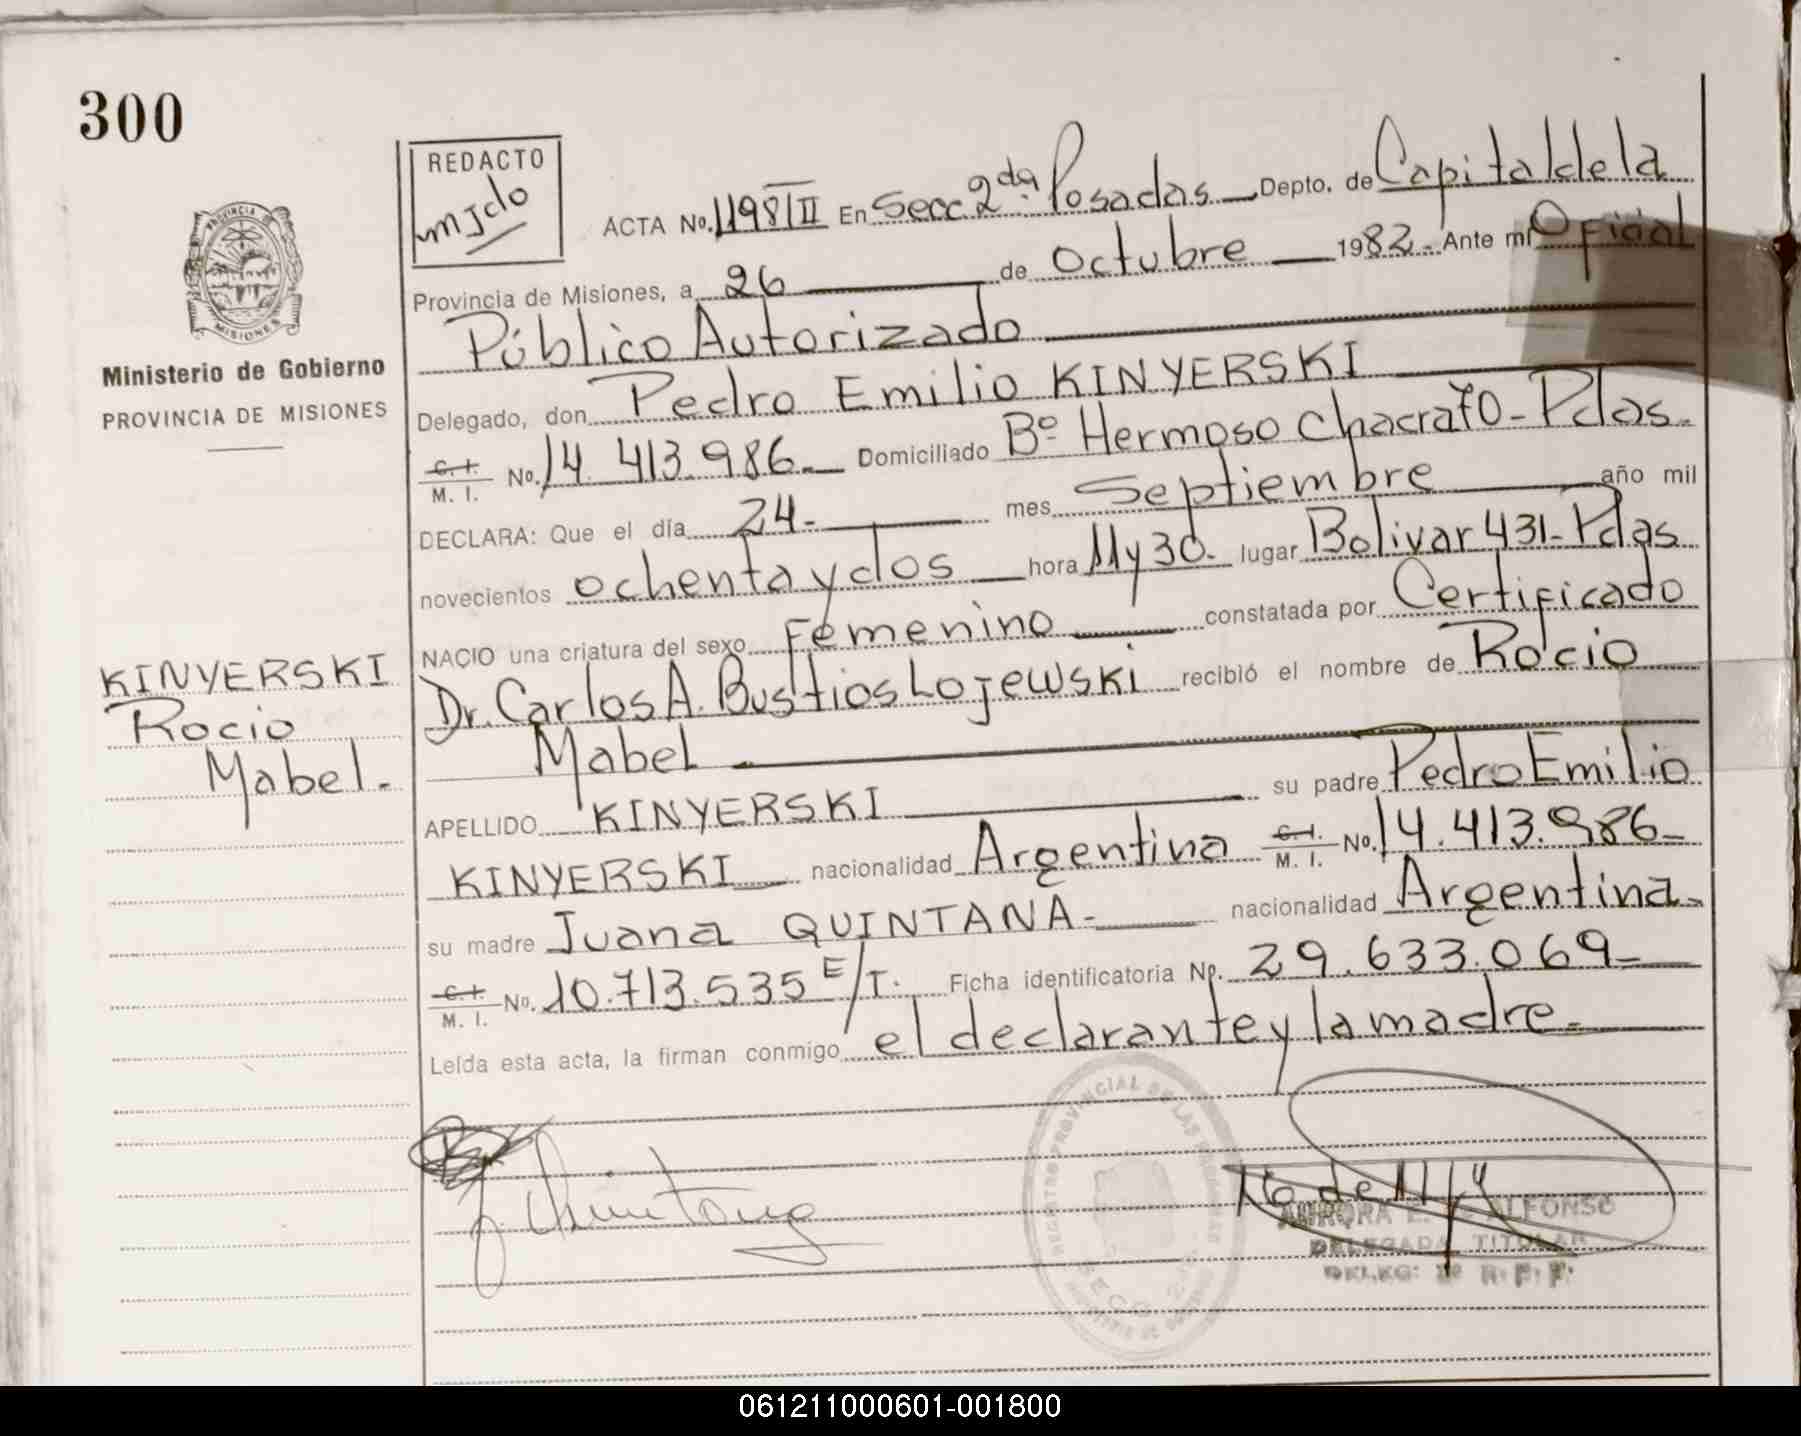 300
REDACTO
ACTA No. 1198/II En Secc 2da. Posadas Depto. de Capital de la
Provincia de Misiones, a 26 de Octubre 1982.- Ante mí Oficial
Público Autorizado
Delegado, don Pedro Emilio KINYERSKI
C. I. M. I. No. 14.413.986.- Domiciliado Bº Hermoso Chacra 70 - Pdas.
DECLARA: Que el día 24.- mes Septiembre año mil
novecientos ochenta y dos hora 11 y 30.- lugar Bolivar 431- Pdas
NACIO una criatura del sexo Femenino constatada por Certificado
Dr. Carlos A. Bustios Lojewski recibió el nombre de Rocio
Mabel
APELLIDO KINYERSKI su padre Pedro Emilio
KINYERSKI nacionalidad Argentina C. I. M. I. No. 14.413.986-
su madre Juana QUINTANA- nacionalidad Argentina.
C. I. M. I. No. 10.713.535 E/T. Ficha identificatoria Nº. 29.633.069-
Leída esta acta, la firman conmigo el declarante y la madre.-
PROVINCIA DE
MISIONES
Ministerio de Gobierno
PROVINCIA DE MISIONES
KINYERSKI
Rocio
Mabel.
J. Quintana
REGISTRO PROVINCIAL DE LAS PERSONAS
AURORA E. DE ALFONSO
DELEGADA TITULAR
061211000601-001800